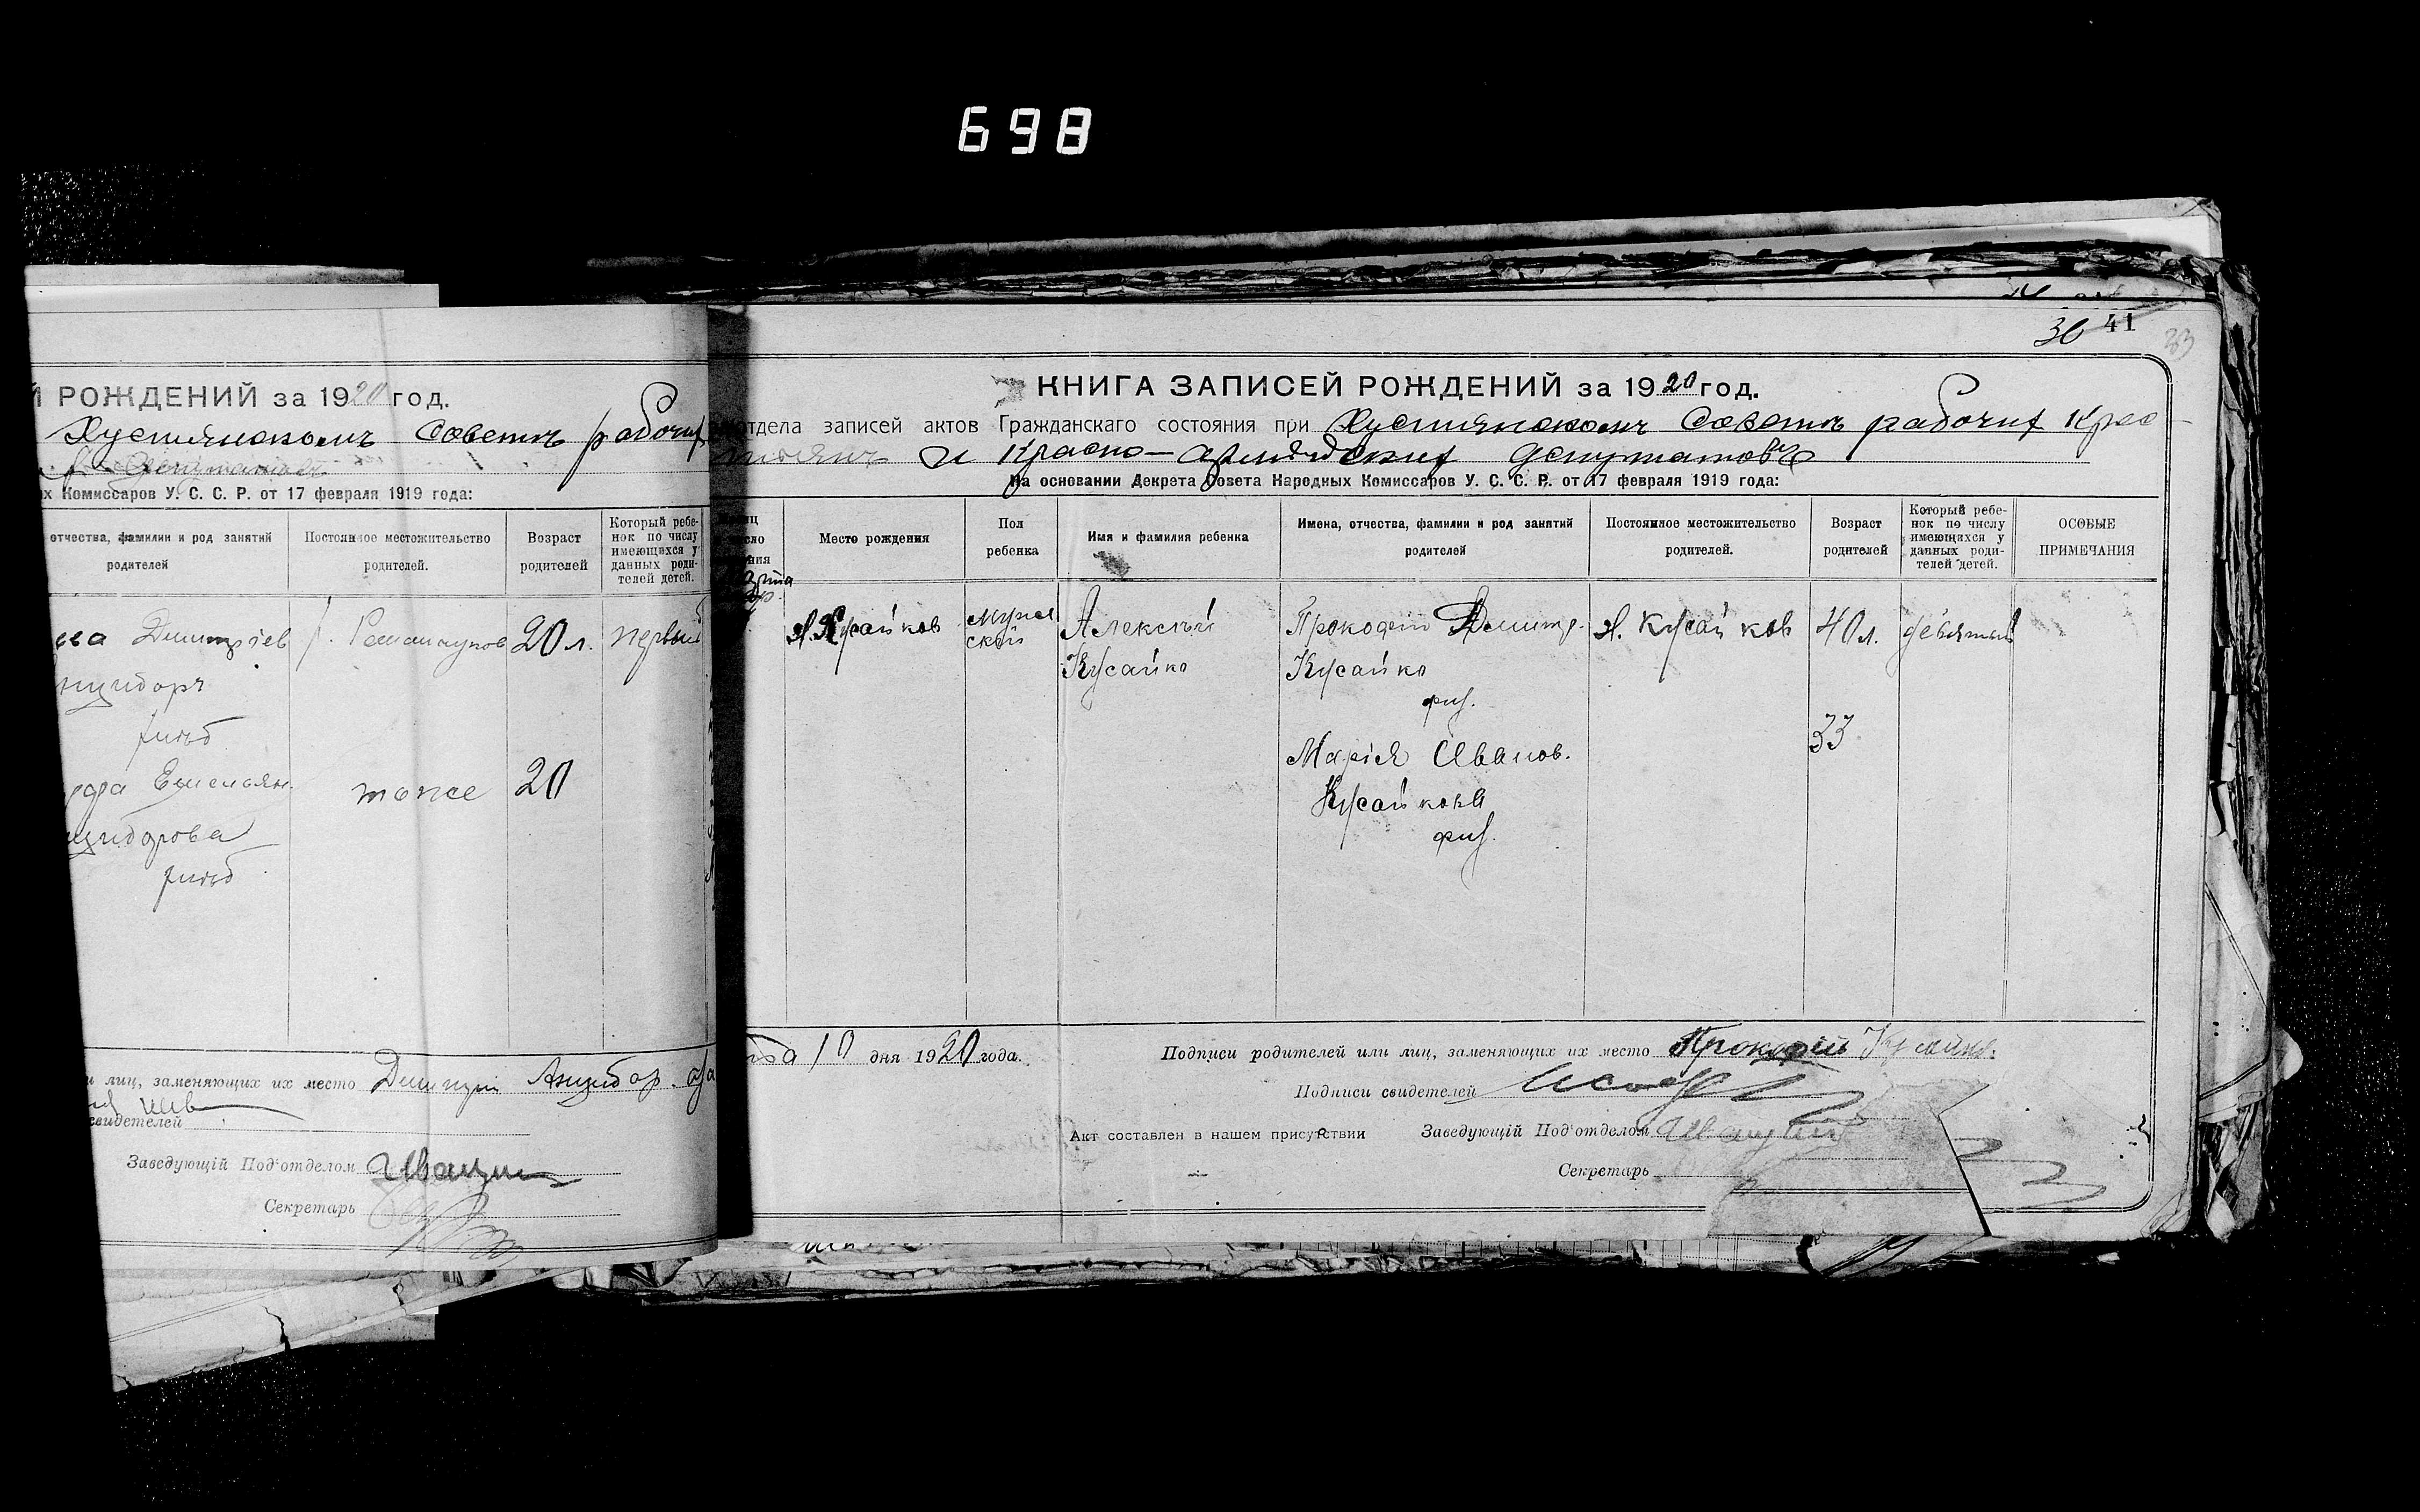 698
Й РОЖДЕНИЙ за 1920 год.
Хустянскомъ Советъ рабочих
х Комиссаров У. С. С. Р. от 17 февраля 1919 года:
отчества, фамилии и род занятий родителей
Постоянное местожительство родителей.
Возраст родителей
Который ребе-
нок по числу
имеющихся у
данных роди-
телей детей.
Дмитріев
20 л.
первый
Емельян.
тоже
20
и лиц, заменяющих их место Дмитрий
свидетелей
Заведующій Под'отделом
Секретарь
36 41
33
КНИГА ЗАПИСЕЙ РОЖДЕНИЙ за 1920 год.
отдела записей актов Гражданскаго состояния при Хустянскомъ Советъ рабочих Крес
тьянъ и Красно-армейских депутатовъ
На основании Декрета Совета Народных Комиссаров У. С. С. Р. от 17 февраля 1919 года:
Место рождения
Пол
ребенка
Имя и фамилия ребенка
Имена, отчества, фамилии и род занятий
родителей
Постоянное местожительство
родителей.
Возраст
родителей
Который ребе-
нок по числу
имеющихся у
данных роди-
телей детей.
ОСОБЫЕ
ПРИМЕЧАНИЯ
х. Кусайков
Мужес
ской
Алексѣй
Кусайко
Прокофій Дмитр.
Кусайко
х. Кусайков
40 л.
девятый
Марія Иванов.
Кусайкова
33
10 дня 1920 года.
Подписи родителей или лиц, заменяющих их место Прокофій Кусайко
Подписи свидетелей
Акт составлен в нашем присутствии
Заведующій Под'отделом
Секретарь